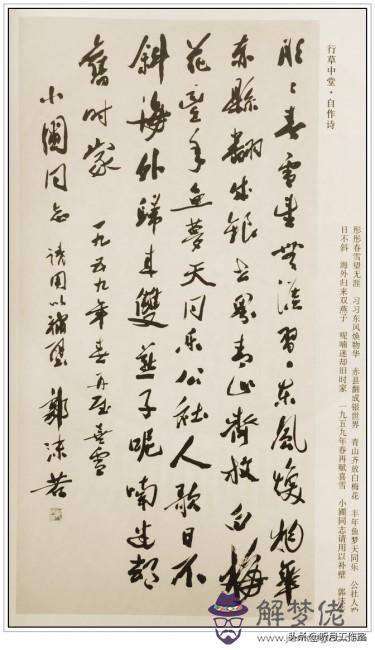 行草中堂·自作诗
彤彤春雪望无涯 习习东风焕物华 赤县翻成银世界 青山齐放白梅花 丰年鱼梦天同乐 公社人
日不斜 海外归来双燕子 呢喃迷却旧时家 一九五九年春再赋喜雪 小圃同志请用以补壁 郭沫
彤々春雪望無涯習々東風煥物華
赤縣翻成銀世界青山齊放白梅
花豐年魚夢天同乐公社人歌日不
斜海外歸来雙燕子呢喃迷却
舊时家 一九五九年春再賦喜雪
小圃同志 請用以補壁 郭沫若
解梦佬
头条@昕月工作室